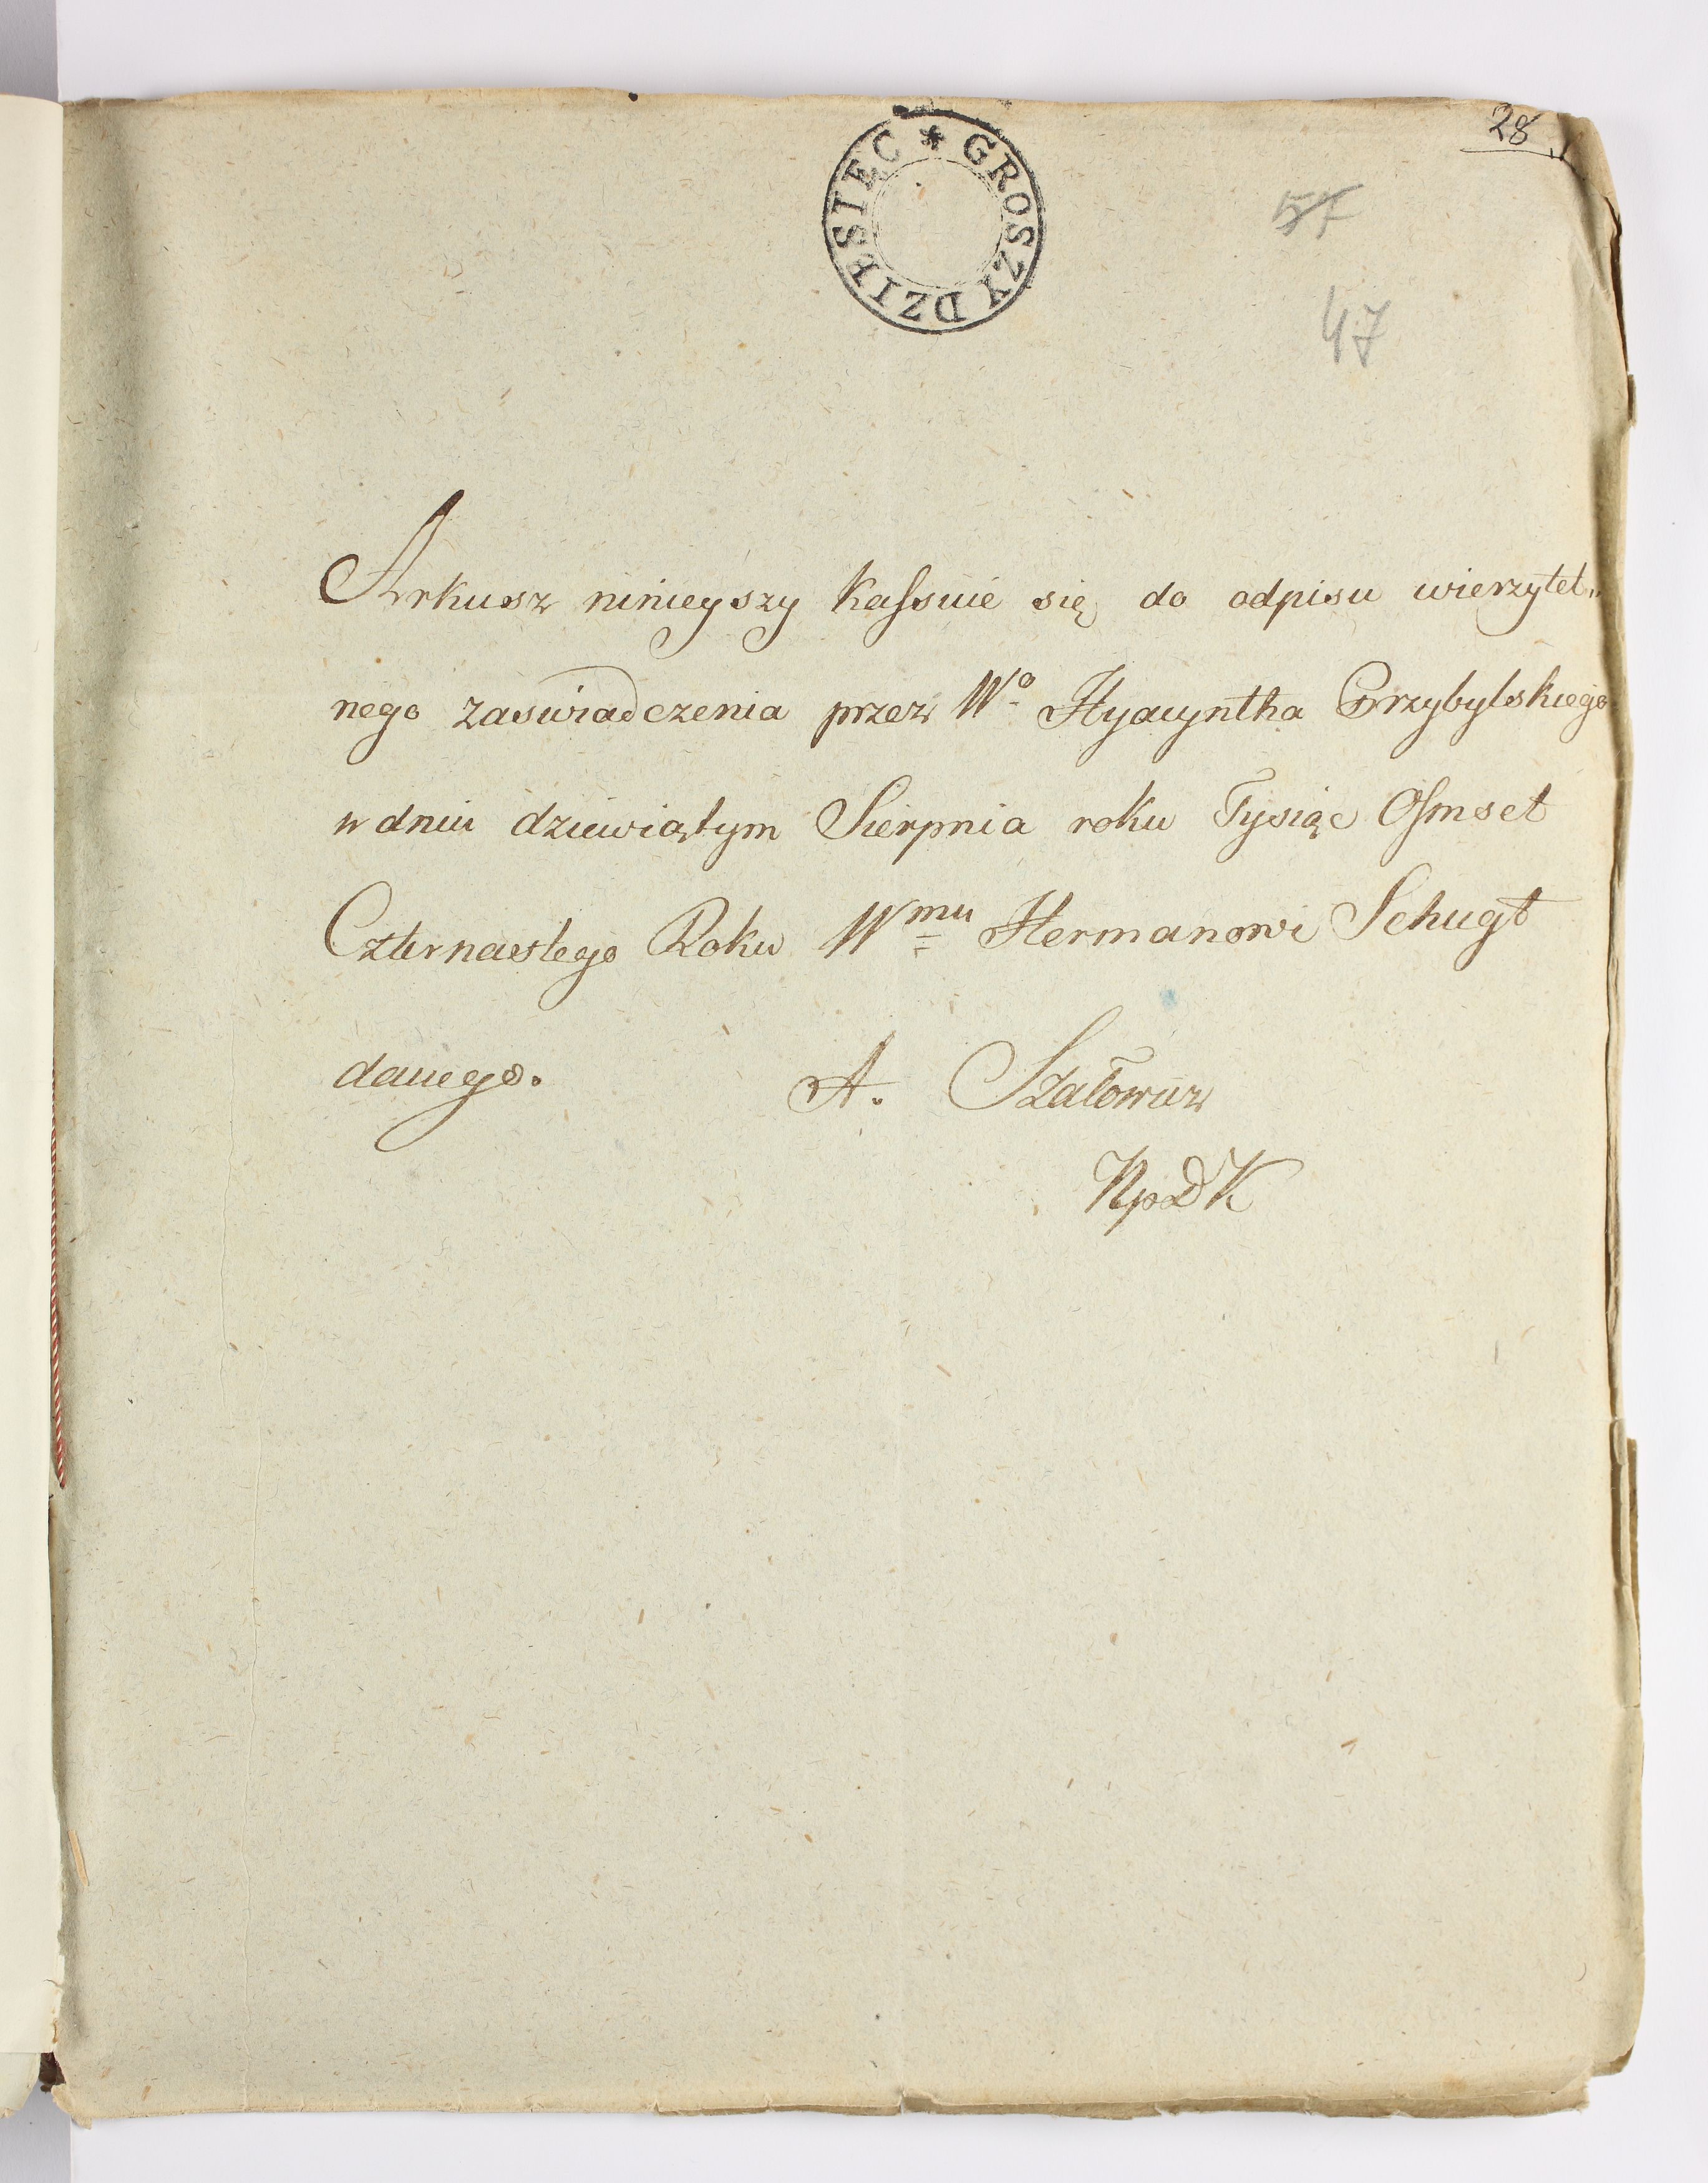 28
GROSZY DZIESIEC *
57
47
Arkusz ninieyszy Kassuie się do odpisu wierzytel„
nego zaswiadczenia przez Wº Hyacyntha Przybylskiego
w dniu dziewiątym Sierpnia roku Tysiąc Osmset
Czternastego Roku Wmu Hermanowi Schugt
danego.
A. Szatowicz
NpDK